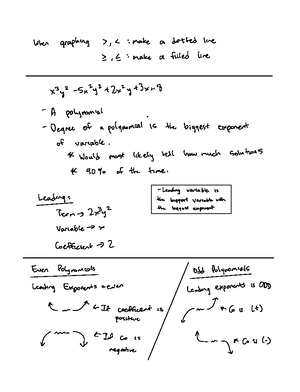 When graphing >, < : make a dotted line
≥, ≤ : make a filled line
x³y² - 5x²y² + 2x²y + 3x - 8
- A polynomial
- Degree of a polynomial is the biggest exponent
of variable.
* Would most likely tell how much solutions
* 90% of the time.
Leading:
Term → 2x³y²
Variable → x
Coefficient → 2
- Leading variable is
the biggest variable with
the biggest exponent
Even Polynomials
Leading Exponents = even
← If coefficient is
positive
← If Co is
negative
Odd Polynomials
Leading exponents is ODD
← Co is (+)
← Co is (-)